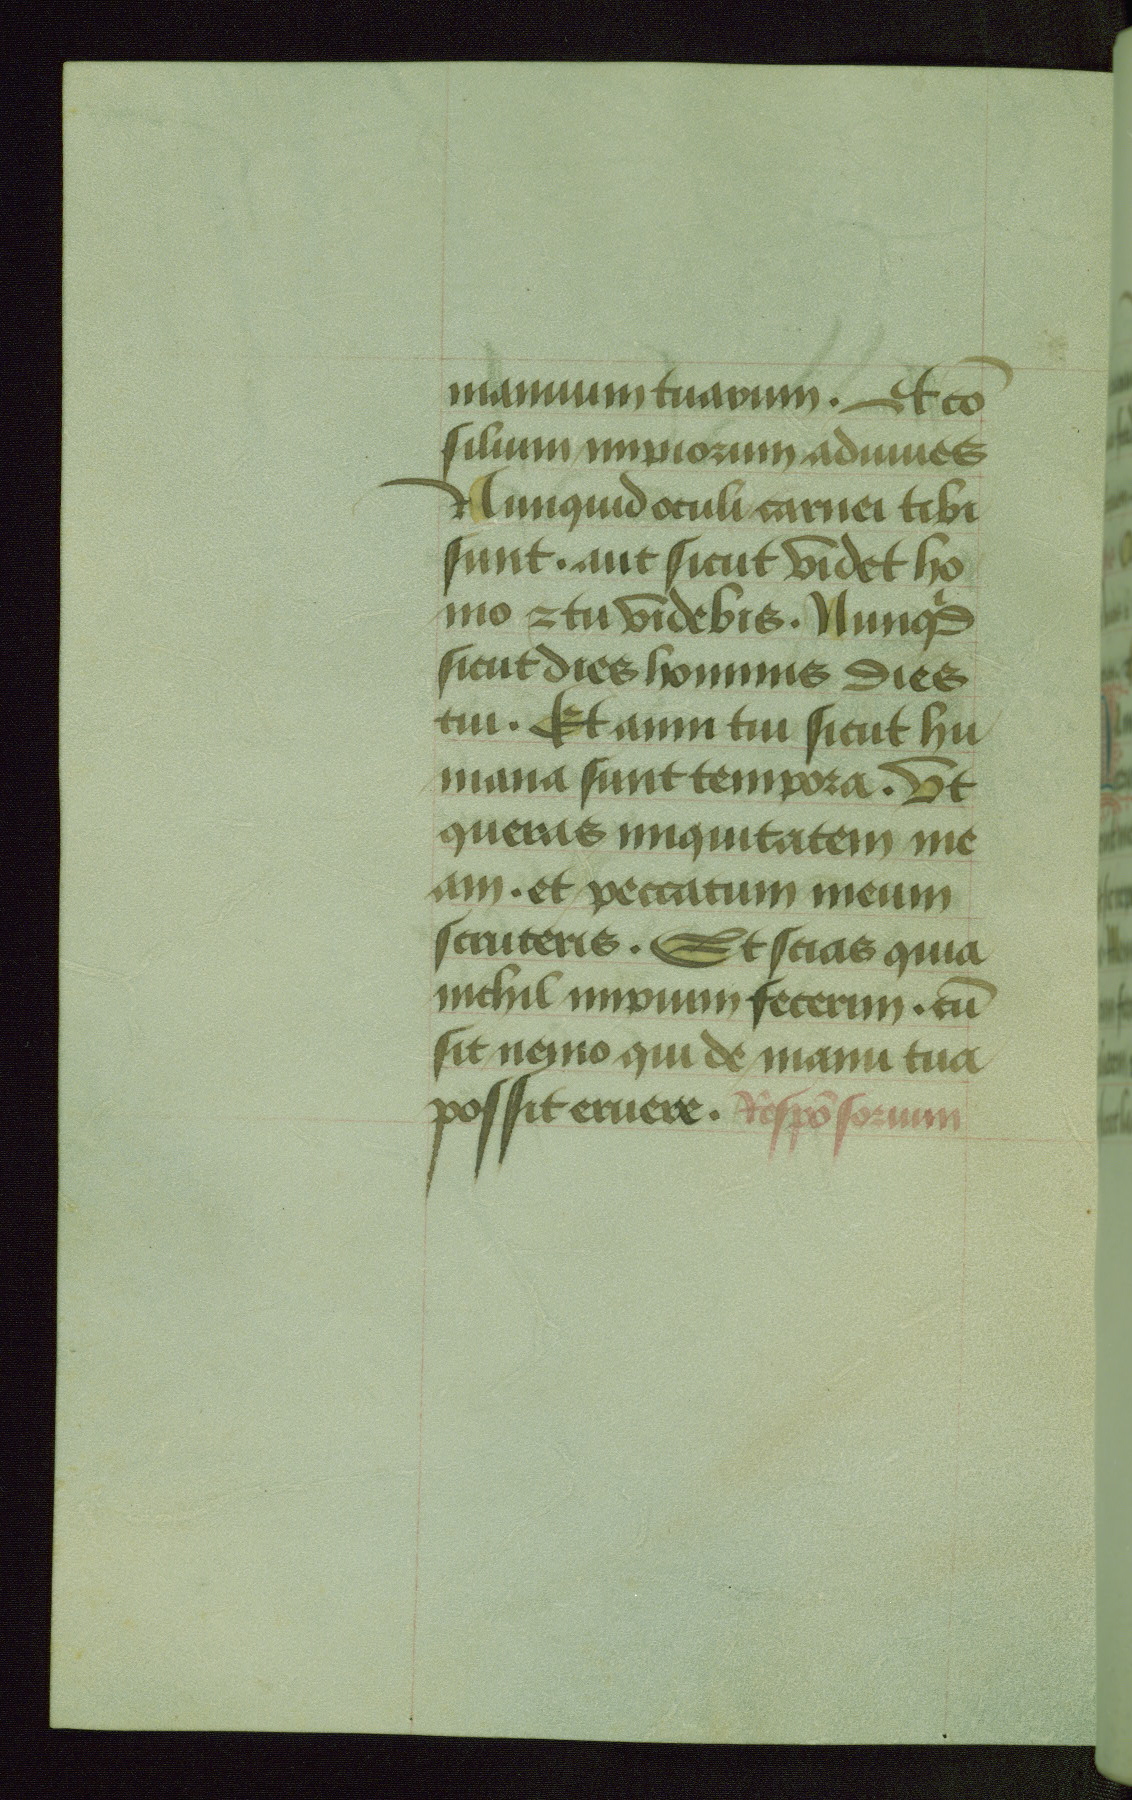 manuum tuarum. Et cō
silium impiorum adiuues
Nunquid oculi carnei tibi
sunt. aut sicut videt ho
mo ⁊ tu videbis. Nunqͥd
sicut dies hominis dies
tui. Et anni tui sicut hu
mana sunt tempora. Vt
queras iniquitatem me
am. et peccatum meum
scruteris. Et scias quia
nichil impium fecerim. cū
sit nemo qui de manu tua
possit eruere. Respōsorium